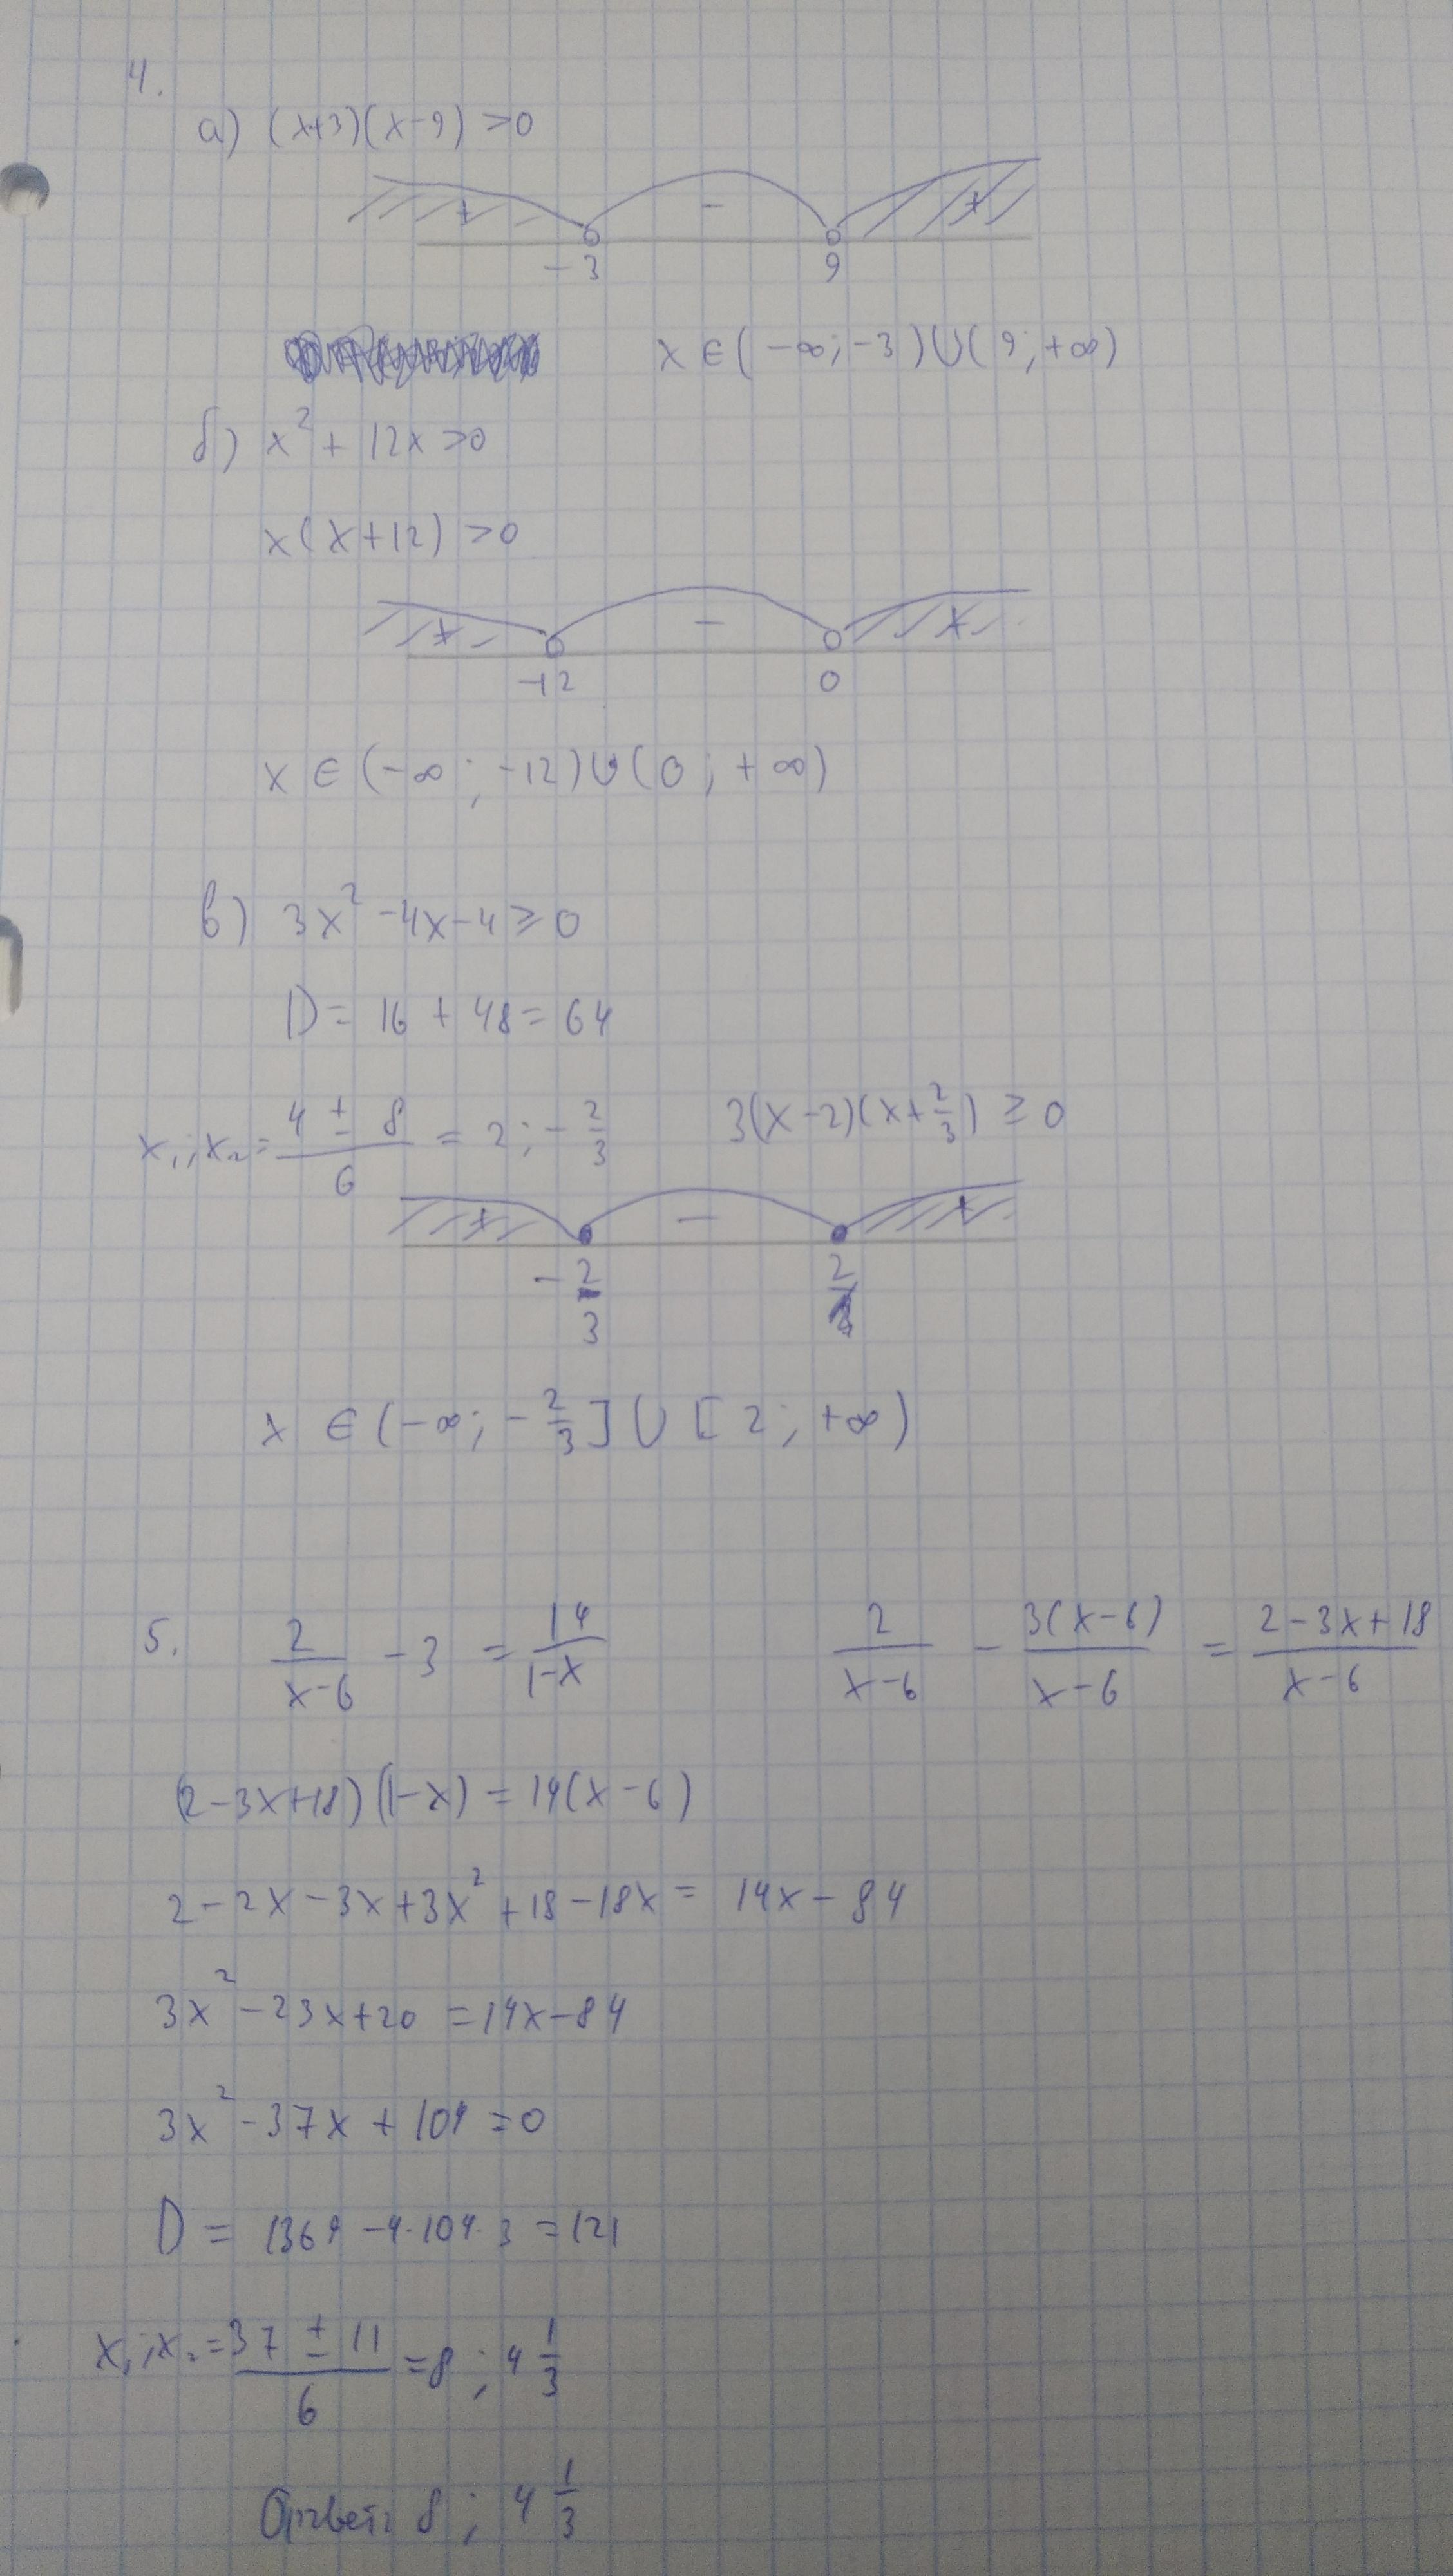 4.
а) (x+3)(x-9) >0
+ - +
-3 9
x ∈ (-∞; -3) ∪ (9; +∞)
б) x² + 12x >0
x(x+12) >0
+ - +
-12 0
x ∈ (-∞; -12) ∪ (0; +∞)
в) 3x² -4x-4 ≥ 0
D = 16 + 48 = 64
x₁; x₂ = (4 ± 8)/6 = 2; -2/3 3(x-2)(x+2/3) ≥ 0
+ - +
-2/3 2
x ∈ (-∞; -2/3] ∪ [2; +∞)
5. 2/(x-6) - 3 = 14/(1-x) 2/(x-6) - 3(x-6)/(x-6) = (2-3x+18)/(x-6)
(2-3x+18)(1-x) = 14(x-6)
2-2x-3x+3x²+18-18x = 14x-84
3x²-23x+20 = 14x-84
3x²-37x+104 =0
D = 1369 -4·104·3 =121
x₁; x₂ = (37 ± 11)/6 = 8; 4 1/3
Ответ: 8; 4 1/3